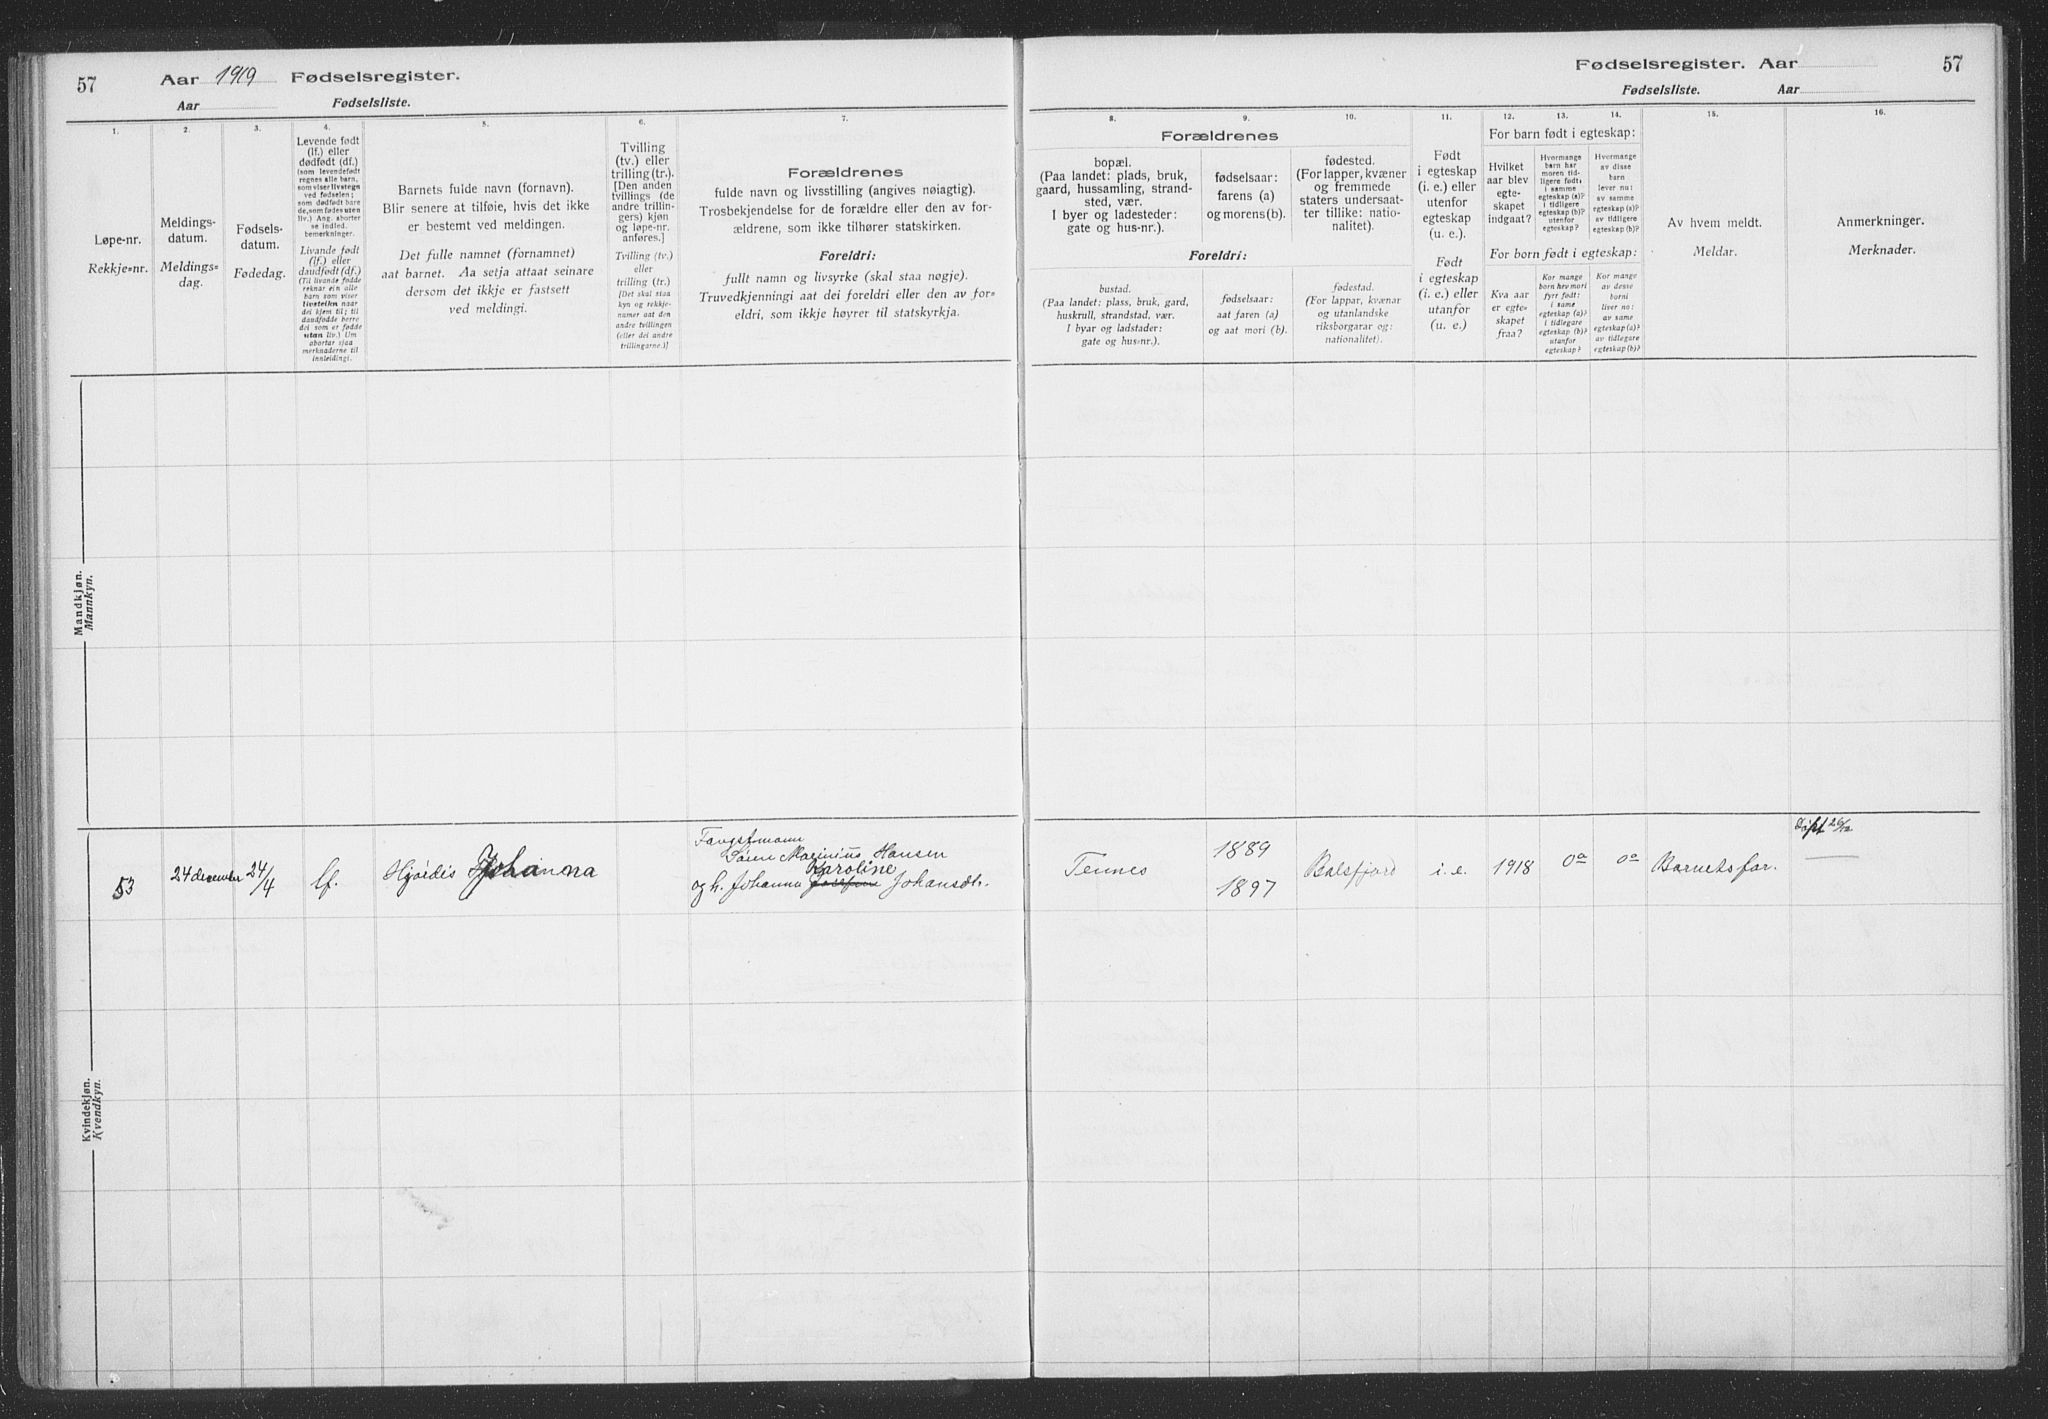 57
Aar 1919 Fødselsregister.
Aar Fødselsliste.
Fødselsregister. Aar
57
Fødselsliste. Aar
1.
Løpe-nr.
Rekkje-nr.
2.
Meldings-
datum.
Meldings-
dag.
3.
Fødsels-
datum.
Fødedag.
4.
Levende født
(lf.) eller
dødfødt (df.)
(som levendefødt
regnes alle barn,
som viser livstegn
ved fødselen;
som dødfødt bare
de, som fødes uten
liv.) Ang. aborter
se indled.
bemerkninger.
Livande født
(lf.) eller
daudfødt (df.)
(Til livande fødde
reknar ein alle
barn som viser
livsteikn naar
dei kjem til; til
daudfødde berre
dei som er fødde
utan liv.) Um
abortar sjaa
merknaderne til
innleidingi.
5.
Barnets fulde navn (fornavn).
Blir senere at tilføie, hvis det ikke
er bestemt ved meldingen.
Det fulle namnet (fornamnet)
aat barnet. Aa setja attaat seinare
dersom det ikkje er fastsett
ved meldingi.
6.
Tvilling
(tv.) eller
trilling (tr.).
[Den anden
tvillings (de
andre trillin-
gers) kjøn
og løpe-nr.
anføres.]
Tvilling (tv.)
eller
trilling (tr.)
[Det skal staa
kyn og rekkje-
numer aat den
andre tvillingen
(eller dei andre
trillingarne.)]
7.
Forældrenes
fulde navn og livsstilling (angives nøiagtig).
Trosbekjendelse for de forældre eller den av for-
ældrene, som ikke tilhører statskirken.
Foreldri:
fullt namn og livsyrke (skal staa nøgje).
Truvedkjenningi aat dei foreldri eller den av for-
eldri, som ikkje høyrer til statskyrkja.
Forældrenes
8.
bopæl.
(Paa landet: plads, bruk,
gaard, hussamling, strand-
sted, vær.
I byer og ladesteder:
gate og hus-nr.).
9.
fødselsaar:
farens (a)
og morens (b).
10.
fødested.
(For lapper, kvæner
og fremmede
staters undersaat-
ter tillike: natio-
nalitet).
Foreldri:
bustad.
(Paa landet: plass, bruk, gard,
huskrull, strandstad, vær.
I byar og ladstader:
gate og hus-nr.).
fødselsaar:
aat faren (a)
og aat mori (b).
fødestad.
(For lappar, kvænar
og utanlandske
riksborgarar og:
nationalitet).
11.
Født
i egteskap
(i. e.) eller
utenfor
egteskap
(u. e.).
Født
i egteskap
(i. e.) eller
utanfor
(u. e.)
For barn født i egteskap:
12.
Hvilket
aar blev
egte-
skapet
indgaat?
13.
Hvormange
barn har
moren tid-
ligere født:
i samme
egteskap (a)?
i tidligere
egteskap (b)?
utenfor
egteskap?
14.
Hvormange
av disse
barn
lever nu:
av samme
egteskap (a)?
av tidligere
egteskap (b)?
For born født i egteskap:
Kva aar
er egte-
skapet
fraa?
Kor mange
born hev mori
fyrr født:
i same
egteskap (a)?
i tidlegare
egteskap (b)?
utanfor
egteskap?
Kor mange
av desse
borni
liver no:
av same
egteskap (a)?
av tidlegare
egteskap (b)?
15.
Av hvem meldt.
Meldar.
16.
Anmerkninger.
Merknader.
Mandkjøn.
Mannkyn.
Kvindekjøn.
Kvendkyn.
53
24 december
24/4
lf.
Hjørdis Johanna
Fangstmann
Søren Marinius Hansen
Karoline
og h. Johanna Johansdtr.
Tennes
1889
1897
Balsfjord
i. e.
1918
0a
0a
Barnets far.
Døpt 26/12